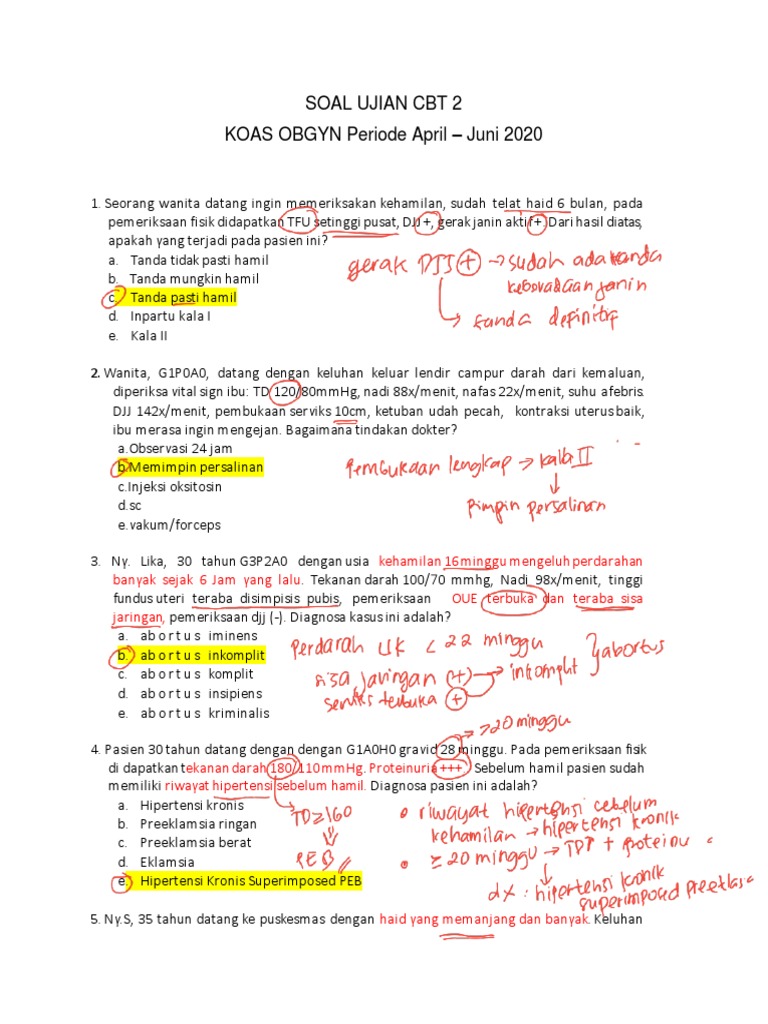 SOAL UJIAN CBT 2
KOAS OBGYN Periode April – Juni 2020
1. Seorang wanita datang ingin memeriksakan kehamilan, sudah telat haid 6 bulan, pada
pemeriksaan fisik didapatkan TFU setinggi pusat, DJJ +, gerak janin aktif +. Dari hasil diatas,
apakah yang terjadi pada pasien ini?
a. Tanda tidak pasti hamil
b. Tanda mungkin hamil
c. Tanda pasti hamil
d. Inpartu kala I
e. Kala II
gerak DJJ + → sudah ada tanda
keberadaan janin
↳ tanda definitif
2. Wanita, G1P0A0, datang dengan keluhan keluar lendir campur darah dari kemaluan,
diperiksa vital sign ibu: TD 120/80mmHg, nadi 88x/menit, nafas 22x/menit, suhu afebris.
DJJ 142x/menit, pembukaan serviks 10cm, ketuban udah pecah, kontraksi uterus baik,
ibu merasa ingin mengejan. Bagaimana tindakan dokter?
a.Observasi 24 jam
b.Memimpin persalinan
c.Injeksi oksitosin
d.sc
e.vakum/forceps
Pembukaan lengkap → kala II
↓
Pimpin persalinan
3. Ny. Lika, 30 tahun G3P2A0 dengan usia kehamilan 16minggu mengeluh perdarahan
banyak sejak 6 Jam yang lalu. Tekanan darah 100/70 mmhg, Nadi 98x/menit, tinggi
fundus uteri teraba disimpisis pubis, pemeriksaan OUE terbuka dan teraba sisa
jaringan, pemeriksaan djj (-). Diagnosa kasus ini adalah?
a. abortus iminens
b. abortus inkomplit
c. abortus komplit
d. abortus insipiens
e. abortus kriminalis
Perdarah UK < 22 minggu } abortus
sisa jaringan (+) → inkomplit
serviks terbuka +
→ ≥20 minggu
4. Pasien 30 tahun datang dengan dengan G1A0H0 gravid 28 minggu. Pada pemeriksaan fisik
di dapatkan tekanan darah 180/110mmHg. Proteinuria +++. Sebelum hamil pasien sudah
memiliki riwayat hipertensi sebelum hamil. Diagnosa pasien ini adalah?
a. Hipertensi kronis
b. Preeklamsia ringan
c. Preeklamsia berat
d. Eklamsia
e. Hipertensi Kronis Superimposed PEB
TD ≥ 160
⇓
PEB
• riwayat hipertensi cebelum
kehamilan → hipertensi kronik
• ≥ 20 minggu → TDT + proteinu
↓
dx : hipertensi kronik
superimposed preekla
5. Ny.S, 35 tahun datang ke puskesmas dengan haid yang memanjang dan banyak. Keluhan